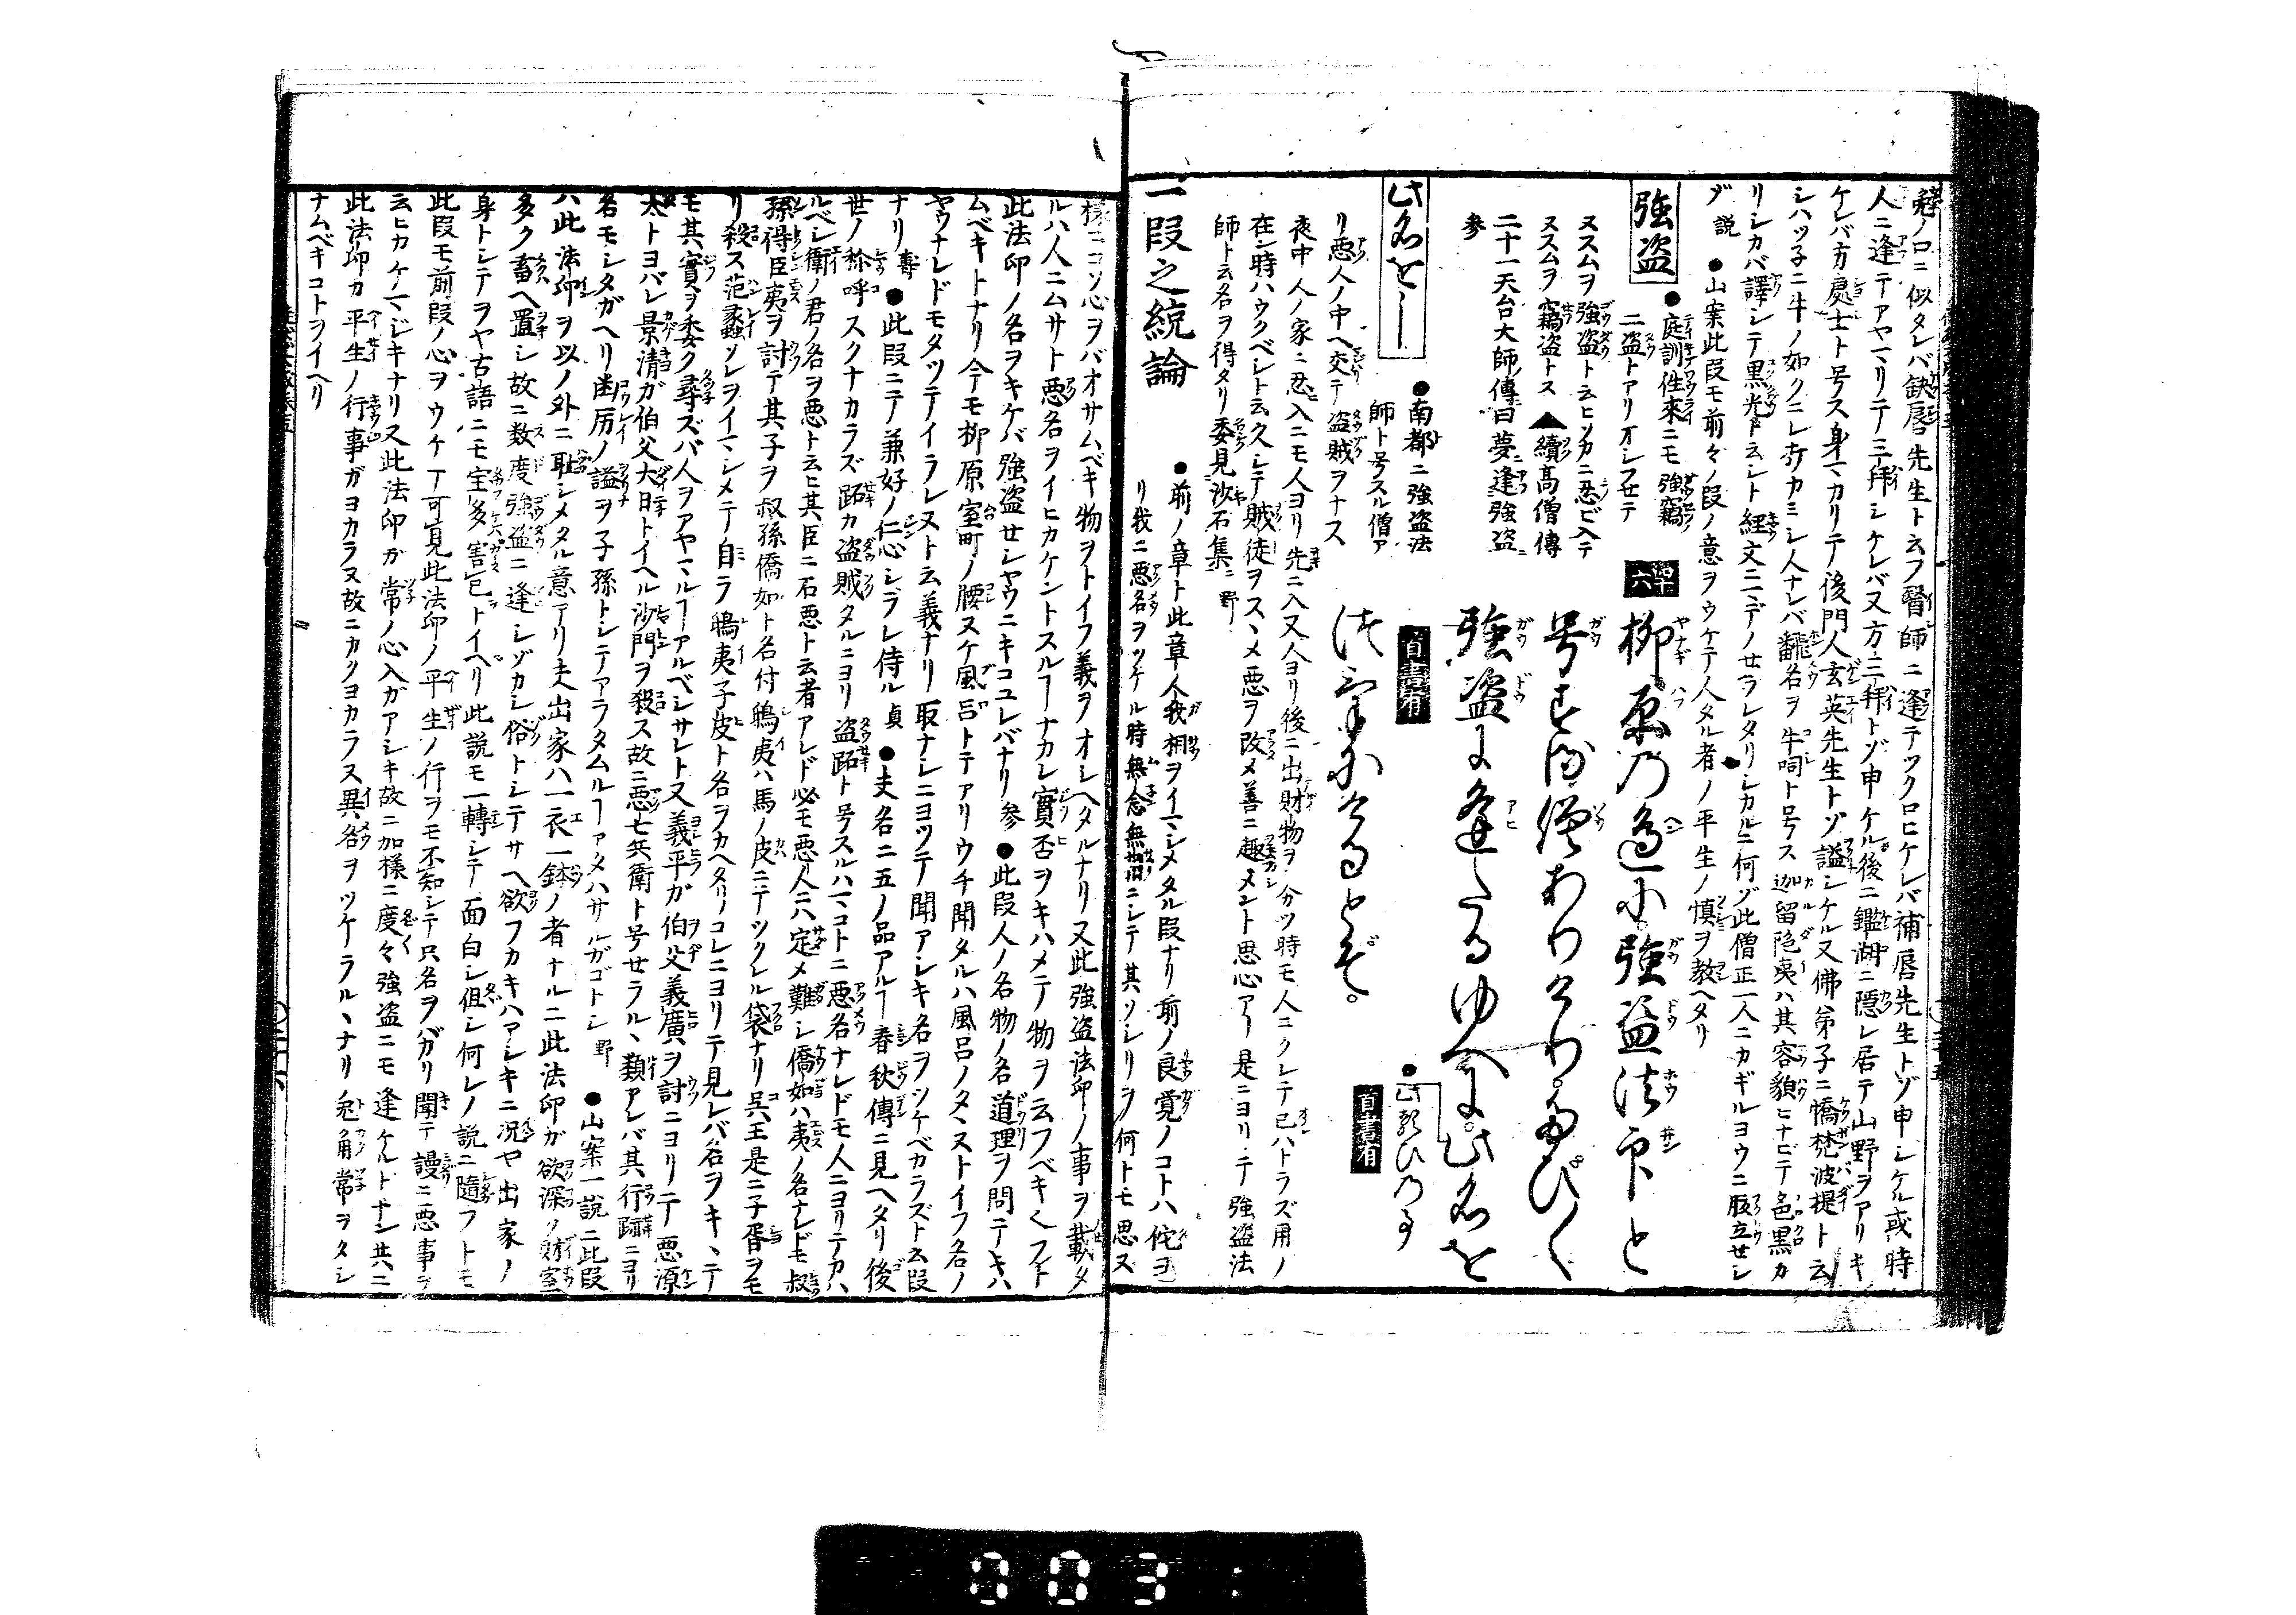 兎ノ口ニ似タレバ缺唇先生ト云フ醫師ニ逢テツクロヒケレバ補唇先生トゾ申シケル或時
人ニ逢テアヤマリテ三拜シケレバ又方三拜トゾ申ケル後ニ鑑湖ニ隠レ居テ山野ヲアリキ
ケレバ方處士ト号ス身マカリテ後門人玄英先生トゾ謚シケル又佛弟子ニ憍梵波提ト云
シハツ子ニ牛ノ如クニレ打カミシ人ナレバ飜名ヲ牛呞ト号ス迦留陀夷ハ其容貌ヒナビテ色黒カ
リシカバ譯シテ黒光ト云シト経文ニミデノせラレタリシカルニ何ゾ此僧正一人ニカギルヨウニ腹立せシ
ゾ 説 ●山案此段モ前々ノ段ノ意ヲウケテ人タル者ノ平生ノ慎ヲ教ヘタリ
強盗 ●庭訓徃來ニモ強竊
二盗トアリオシフせテ
ヌスムヲ強盗ト云ヒソカニ忍ビ入テ
ヌスムヲ竊盗トス ▲續高僧傳
二十一天台大師ノ傳曰夢ニ逢強盗ニ
参
此名をー ●南都ニ強盗法
師ト号スル僧ア
リ悪人ノ中ヘ交テ盗賊ヲナス
夜中人ノ家ニ忍入ニモ人ヨリ先ニ入又人ヨリ後ニ出財物ヲ分ツ時モ人ニクレテ己ハトラズ用ノ
在シ時ハウクベシト云久シテ賊徒ヲスヽメ悪ヲ改メ善ニ趣メント思心アリ是ニヨリテ強盗法
師ト云名ヲ得タリ委見沙石集ニ 野
四十六 柳原乃邊に強盗法印と
号する僧ありけり。たびく
強盗に逢たるゆへに。此名を
つけにけるとぞ。
首書有
●此類ひの事
首書有
一段之統論 ●前ノ章ト此章人我相ヲイマシメタル段ナリ前ノ良覚ノコトハ侘ヨ
リ我ニ悪名ヲツケル時無念無想ニシテ其ソシリヲ何トモ思ヌ
様ニコソ心ヲバオサムベキ物ヲトイフ義ヲオシヘタルナリ又此強盗法印ノ事ヲ載タ
ルハ人ニムサト悪名ヲイヒカケントスルーナカレ實否ヲキハメテ物ヲ云フベキトフト
此法印ノ名ヲキケバ強盗せシヤウニキコユレバナリ 参 ●此段人ノ名物ノ名道理ヲ問ニテキハ
ムベキトナリ今モ柳原室町ノ腰ヌケ風呂トテアリウチ聞タルハ風呂ノタヽストイフ名ノ
ヤウナレドモタツテイラレヌト云義ナリ取ナシニヨツテ聞アシキ名ヲツケベカラズト云段
ナリ 壽 ●此段ニテ兼好ノ仁心シラレ侍ル 貞 ●夫名ニ五ノ品アルー春秋傳ニ見ヘタリ後
世ノ称呼スクナカラズ跖カ盗賊タルニヨリ盗跖ト号スルハマコトニ悪名ナレドモ人ニヨリテカハ
ルベシ衛ノ君ノ名ヲ悪ト云ヒ其臣ニ石悪ト云者アレド必モ悪人ニハ定メ難シ僑如ハ夷ノ名ナレドモ叔
孫得臣夷ヲ討テ其子ヲ叔孫僑如ト名付鴟夷ハ馬ノ皮ニテツクレル袋ナリ呉王是ニ子胥ヲモ
リ殺ス范蠡ソレヲイマシメテ自ラ鴟夷子皮ト名ヲカヘタリコレニヨリテ見レバ名ヲキヽテ
モ其實ヲ委ク尋ズバ人ヲアヤマルーアルベシサレト又義平ガ伯父義廣ヲ討ニヨリテ悪源
太トヨバレ景清ガ伯父大日トイヘル沙門ヲ殺ス故ニ悪七兵衛ト号せラルヽ類アレバ其行跡ニヨリ
名モシタガヘリ幽厉ノ謚ヲ子孫トシテアラタムルーアタハサルガゴトシ 野 ●山案一説ニ此段
ハ此法印ヲ以ノ外ニ耻シメタル意アリ夫出家ハ一衣一鉢ノ者ナルニ此法印ガ欲深ク財宝
多ク畜ヘ置シ故ニ数度強盗ニ逢シゾカシ俗トシテサヘ欲フカキハアシキニ况ヤ出家ノ
身トシテヲヤ古語ニモ宝多害己トイヘリ此説モ一轉シテ面白シ但シ何レノ説ニ隨フトモ
此段モ前段ノ心ヲウケテ可見此法印ノ平生ノ行ヲモ不知シテ只名ヲバカリ聞テ謾ニ悪事ヲ
云ヒカケマジキナリ又此法印ガ常ノ心入ガアシキ故ニ加様ニ度々強盗ニモ逢ケルトナン共ニ
此法印カ平生ノ行事ガヨカラヌ故ニカクヨカラヌ異名ヲツケラルヽナリ兎角常ヲタシ
ナムベキコトヲイヘリ